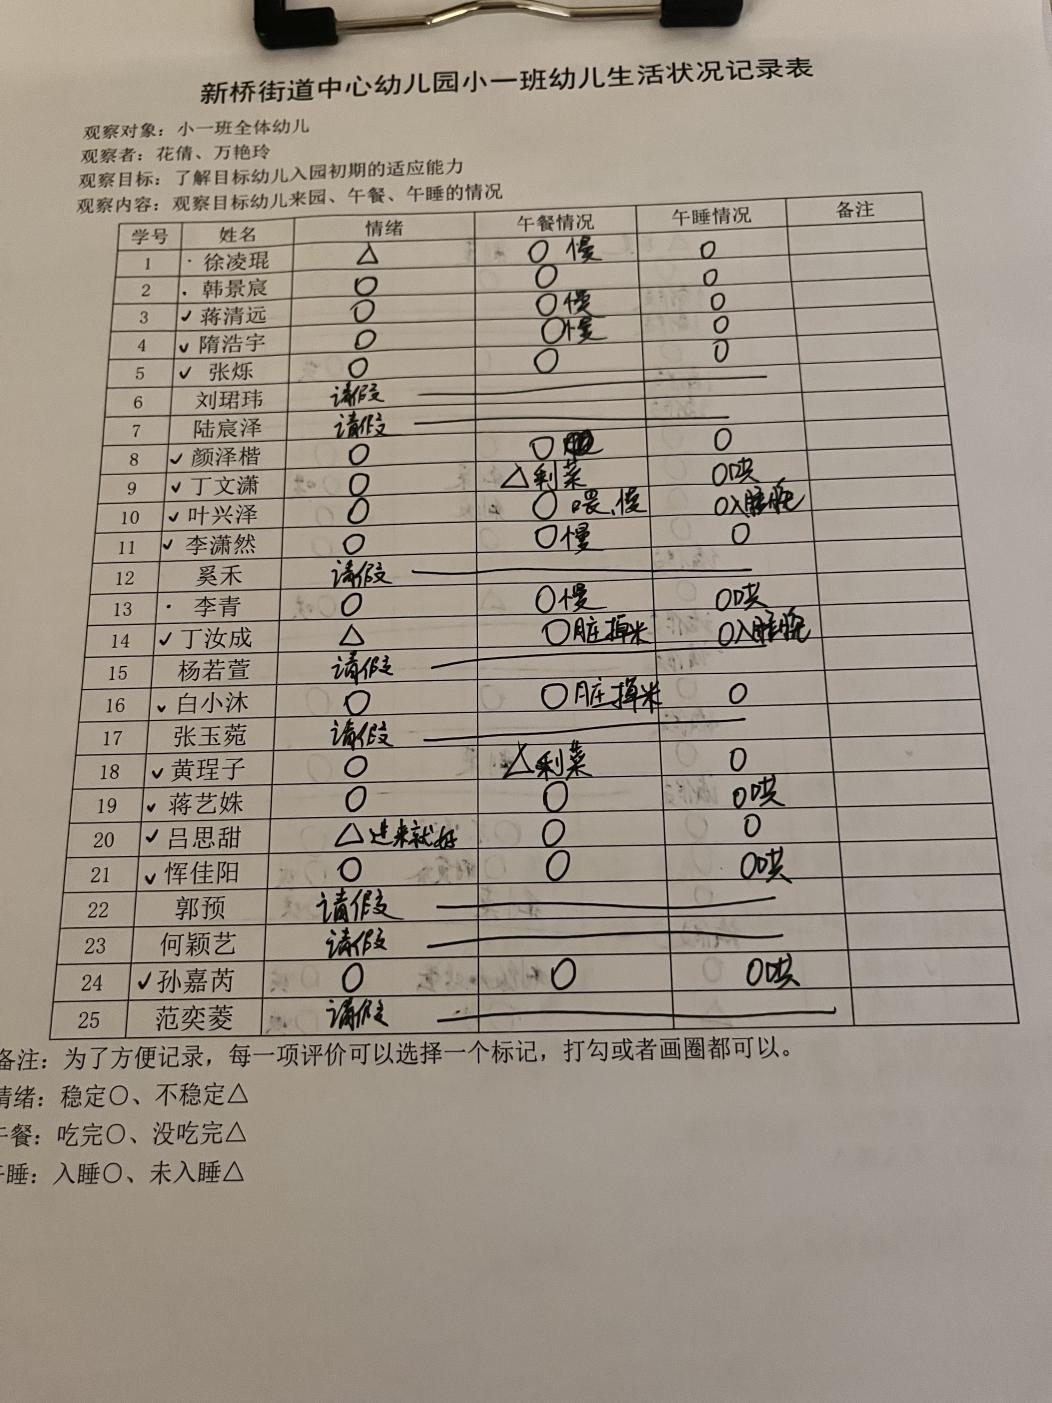 新桥街道中心幼儿园小一班幼儿生活状况记录表
观察对象：小一班全体幼儿
观察者：花倩、万艳玲
观察目标：了解目标幼儿入园初期的适应能力
观察内容：观察目标幼儿来园、午餐、午睡的情况
学号 姓名 情绪 午餐情况 午睡情况 备注
1 · 徐凌琨 △ ○ 慢 ○
2 · 韩景宸 ○ ○ ○
3 ✓ 蒋清远 ○ ○慢 ○
4 ✓ 隋浩宇 ○ ○慢 ○
5 ✓ 张烁 ○ ○ ○
6 刘珺玮 请假
7 陆宸泽 请假
8 ✓ 颜泽楷 ○ ○ ○
9 ✓ 丁文潇 ○ △剩菜 ○哄
10 ✓ 叶兴泽 ○ ○ 喂、慢 ○入睡晚
11 ✓ 李潇然 ○ ○慢 ○
12 奚禾 请假
13 · 李青 ○ ○慢 ○哄
14 ✓ 丁汝成 △ ○脏掉米 ○入睡晚
15 杨若萱 请假
16 ✓ 白小沐 ○ ○脏掉米 ○
17 张玉菀 请假
18 ✓ 黄珵子 ○ △剩菜 ○
19 ✓ 蒋艺姝 ○ ○ ○哄
20 ✓ 吕思甜 △进来就好 ○ ○
21 ✓ 恽佳阳 ○ ○ ○哄
22 郭预 请假
23 何颖艺 请假
24 ✓ 孙嘉芮 ○ ○ ○哄
25 范奕菱 请假
备注：为了方便记录，每一项评价可以选择一个标记，打勾或者画圈都可以。
情绪：稳定○、不稳定△
午餐：吃完○、没吃完△
午睡：入睡○、未入睡△